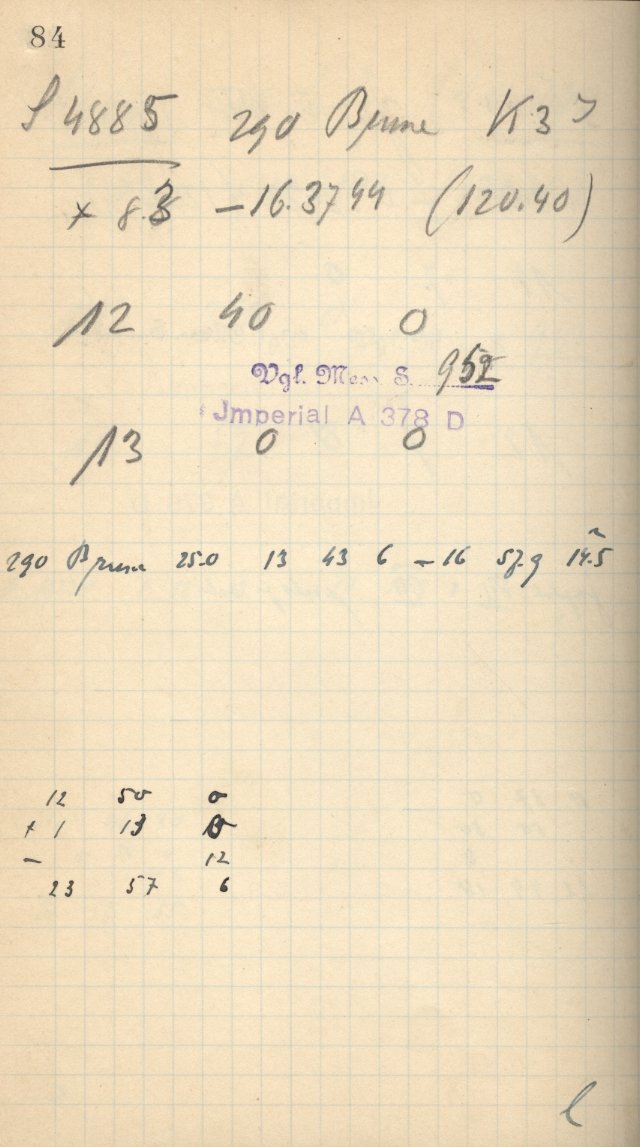 84
S 4885 290 Bruna K3
× 8.3 – 16.3744 (120.40)
12 40 0
Vgl. Mess. S. 952
Jmperial A 378 D
13 0 0
290 Bruna 25.0 13 43 6 – 16 57.9 14.5
12 50 0
+ 1 13 0
– 12
23 57 6